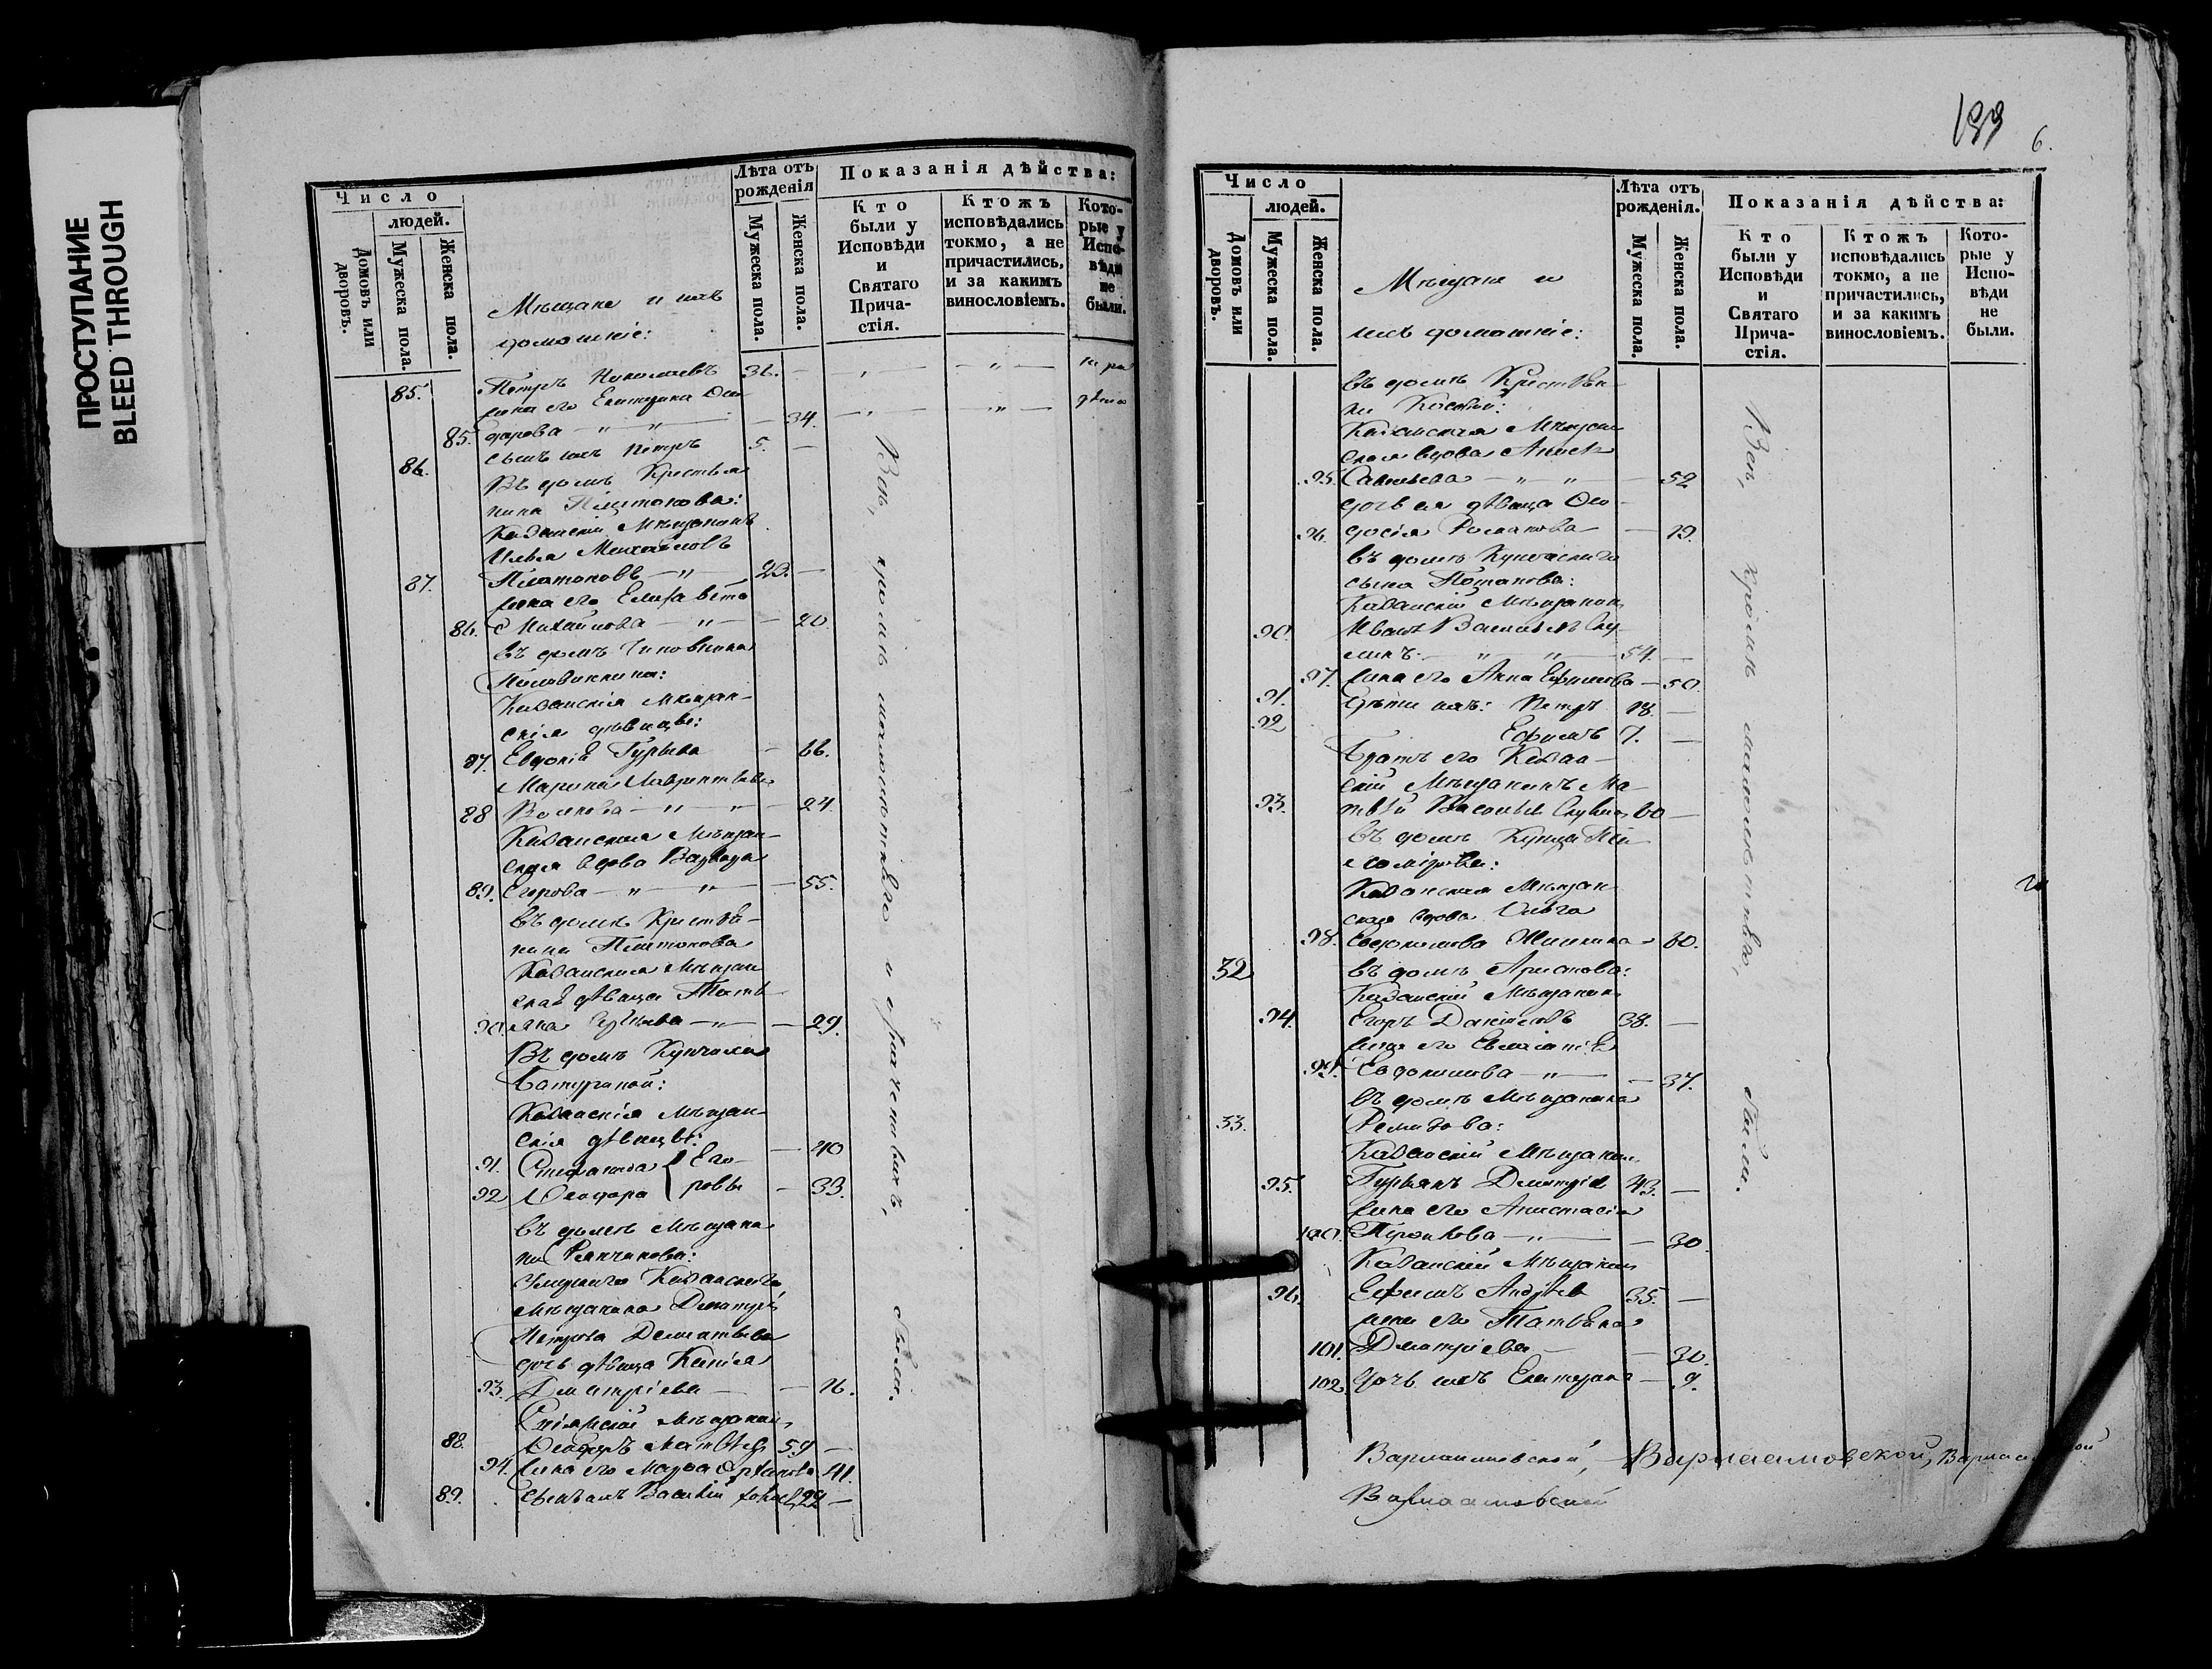 ПРОСТУПАНИЕ
BLEED THROUGH
Число
людей.
Домовъ или дворовъ.
Мужеска пола.
Женска пола.
Мѣщане и ихъ
домашніе:
Лѣта отъ
рожденія
Мужеска пола.
Женска пола.
Показанія дѣйства:
Кто
были у
Исповѣди
и
Святаго
Прича-
стія.
Ктожъ
исповѣдались
токмо, а не
причастились,
и за какимъ
винословіемъ.
Кото-
рые у
Испо-
вѣди
не
были.
85. Петръ Николаевъ 36.
жена его Екатерина Ѳео-
85. дорова 34.
86. сынъ ихъ Петръ 5.
Въ домѣ Крестья
нина Платонова:
Казанскій Мѣщанинъ
Илья Михайловъ
87. Платоновъ 23.
жена его Елизавета
86. Михайлова 20
въ домѣ Чиновника
Половинкина:
Казанскія мѣщан-
скія дѣвицы:
87. Евдокія Гурьева 66.
Марина Лаврентьева
88 Волкова 24.
Казанская Мѣщан-
ская вдова Варвара
89. Егорова 55.
въ домѣ Крестья-
нина Платонова
Казанская Мѣщан
ская дѣвица Татья
90. на 29.
Въ домѣ Купчихи
Батуриной:
Казанскія Мѣщан-
скія дѣвицы:
91. Степанида Его- 40
92 Ѳеодора ровы 33.
въ домѣ Мѣщана
на
Умершаго Казанскаго
Мѣщанина Дмитрія
Петрова Дементьева
дочь дѣвица Капіта
93. Дмитріева 16.
Мѣщанинъ
88. Ѳеодоръ Матвѣевъ 59
94. жена его Марѳа 41.
89. сынъ ихъ Василій 22
Всѣ, кромѣ малолѣтняго и отмеченныхъ, были.
199 6.
Число
людей.
Домовъ или дворовъ.
Мужеска пола.
Женска пола.
Мѣщане и
ихъ домашніе:
Лѣта отъ
рожденія.
Мужеска пола.
Женска пола.
Показанія дѣйства:
Кто
были у
Исповѣди
и
Святаго
Прича-
стія.
Ктожъ
исповѣдались
токмо, а не
причастились,
и за какимъ
винословіемъ.
Кото-
рые у
Испо-
вѣди
не
были.
въ домѣ Крестьян-
ки Косовой:
Казанская Мѣщан
ская вдова
95. Савельева 52
дочь ея дѣвица Ѳео-
96. досія Романова 19.
въ домѣ Купеческаго
сына Потапова:
Казанскій Мѣщанинъ
90. Иванъ Васильевъ Ску-
линъ 54.
97. жена его Анна Ефимова 50
91. Дѣти ихъ: Петръ 18.
92 Ефимъ 7.
Братъ его Казан-
скій Мѣщанинъ Ма-
93. твѣй Васильевъ 60
въ домѣ Купца

Казанская Мѣщан
ская вдова Ольга
98. Евдокимова 60.
32 въ домѣ
Казанскій Мѣщанинъ
94. Егоръ Даниловъ 38.
жена его Евлампія
99. Евдокимова 37.
въ домѣ Мѣщанина
33. Ремизова:
Казанскій Мѣщанинъ
95. Гурьянъ Дмитріевъ 43.
жена его Анастасія
100. 30.
Казанскій Мѣщанинъ
96. Ефимъ Андреевъ 35.
жена его Татьяна
101. Дмитріева 30.
102. Дочь ихъ Екатерина 9.
Всѣ, кромѣ малолѣтняго, были.
Варлаамовской, Варлаамовской, Варлаа
Варлаамовской